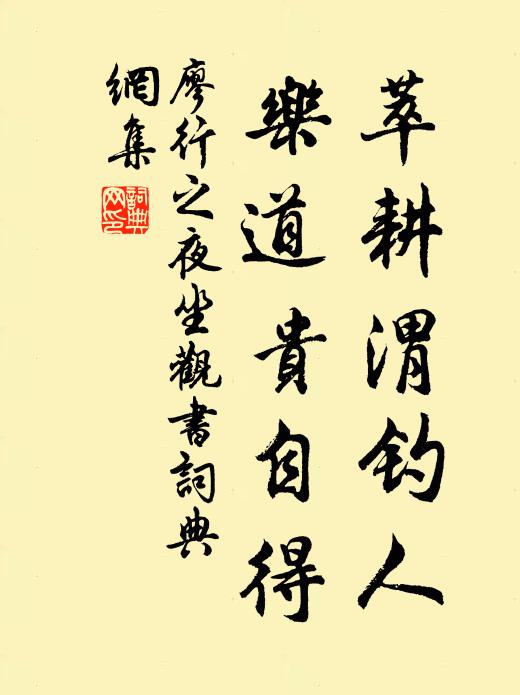 萃耕渭钓人
樂道貴自得
廖行之夜坐觀書詞典
網集
詞典網印